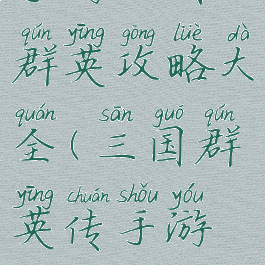 qún yīng gōng lüè dà
群英攻略大
quán sān guó qún
全(三国群
yīng chuán shǒu yóu
英传手游